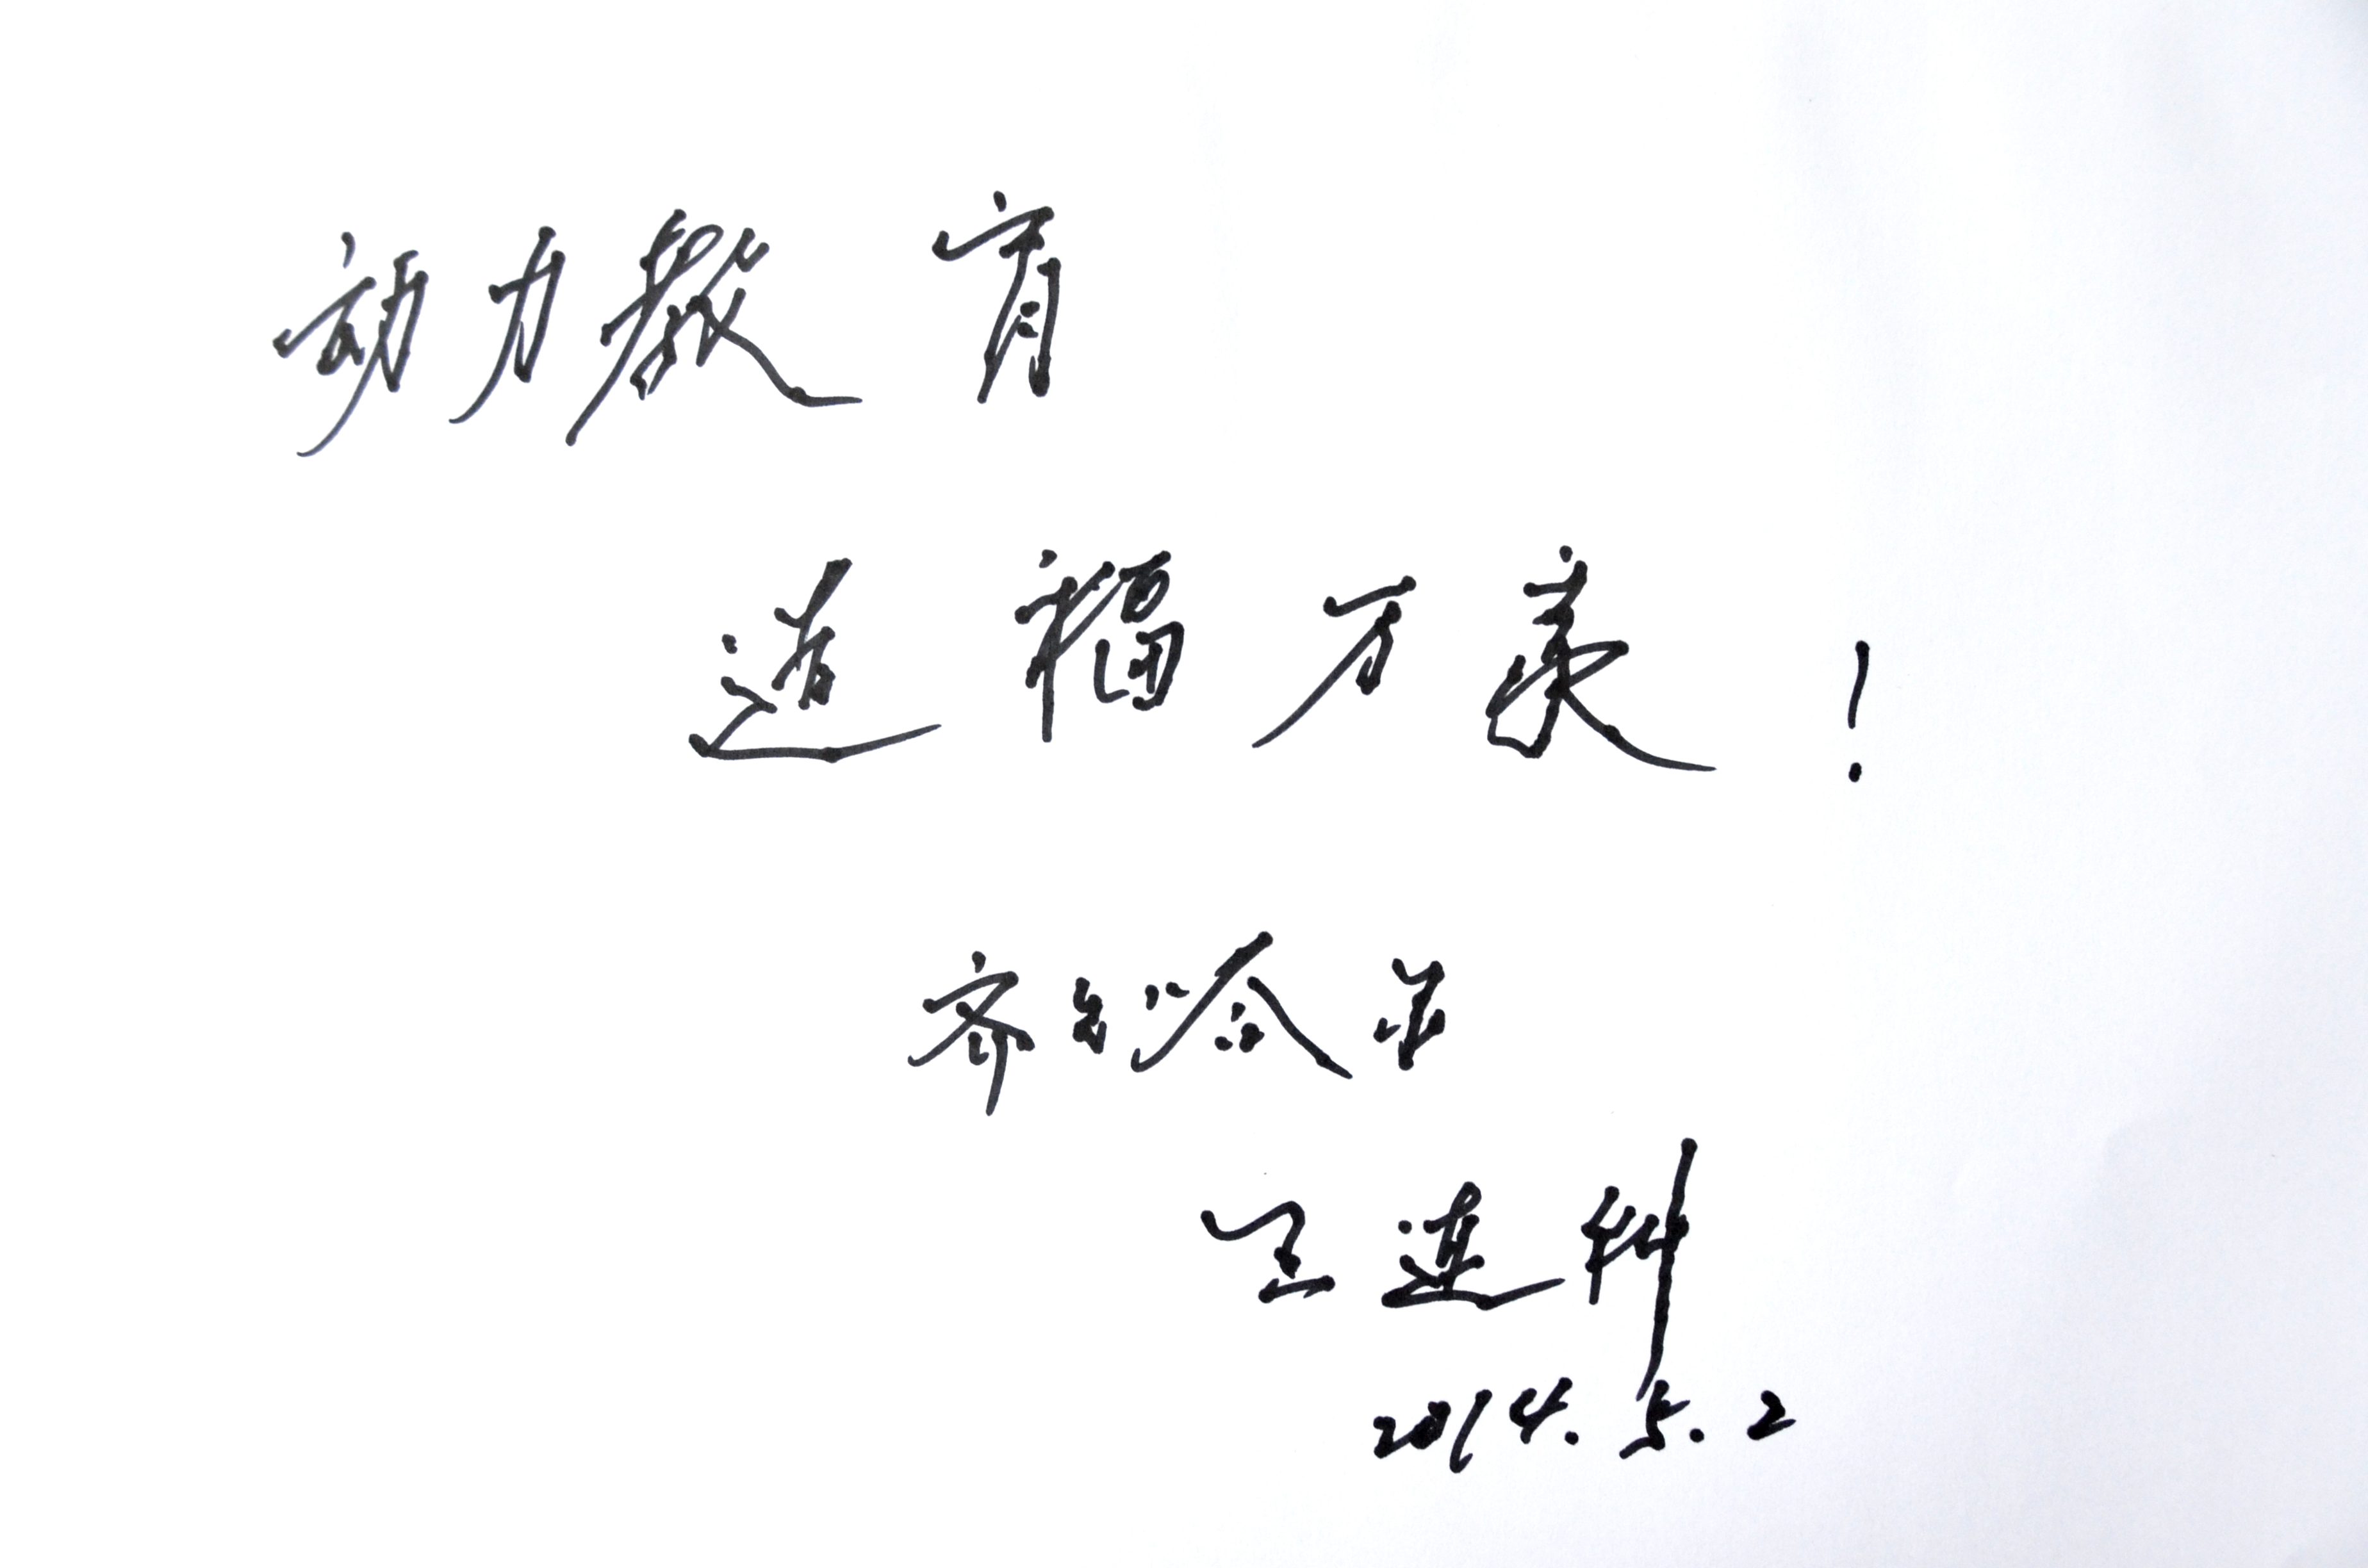 动力教育
造福万家！
齐乌哈尔
王连科
2014.5.2